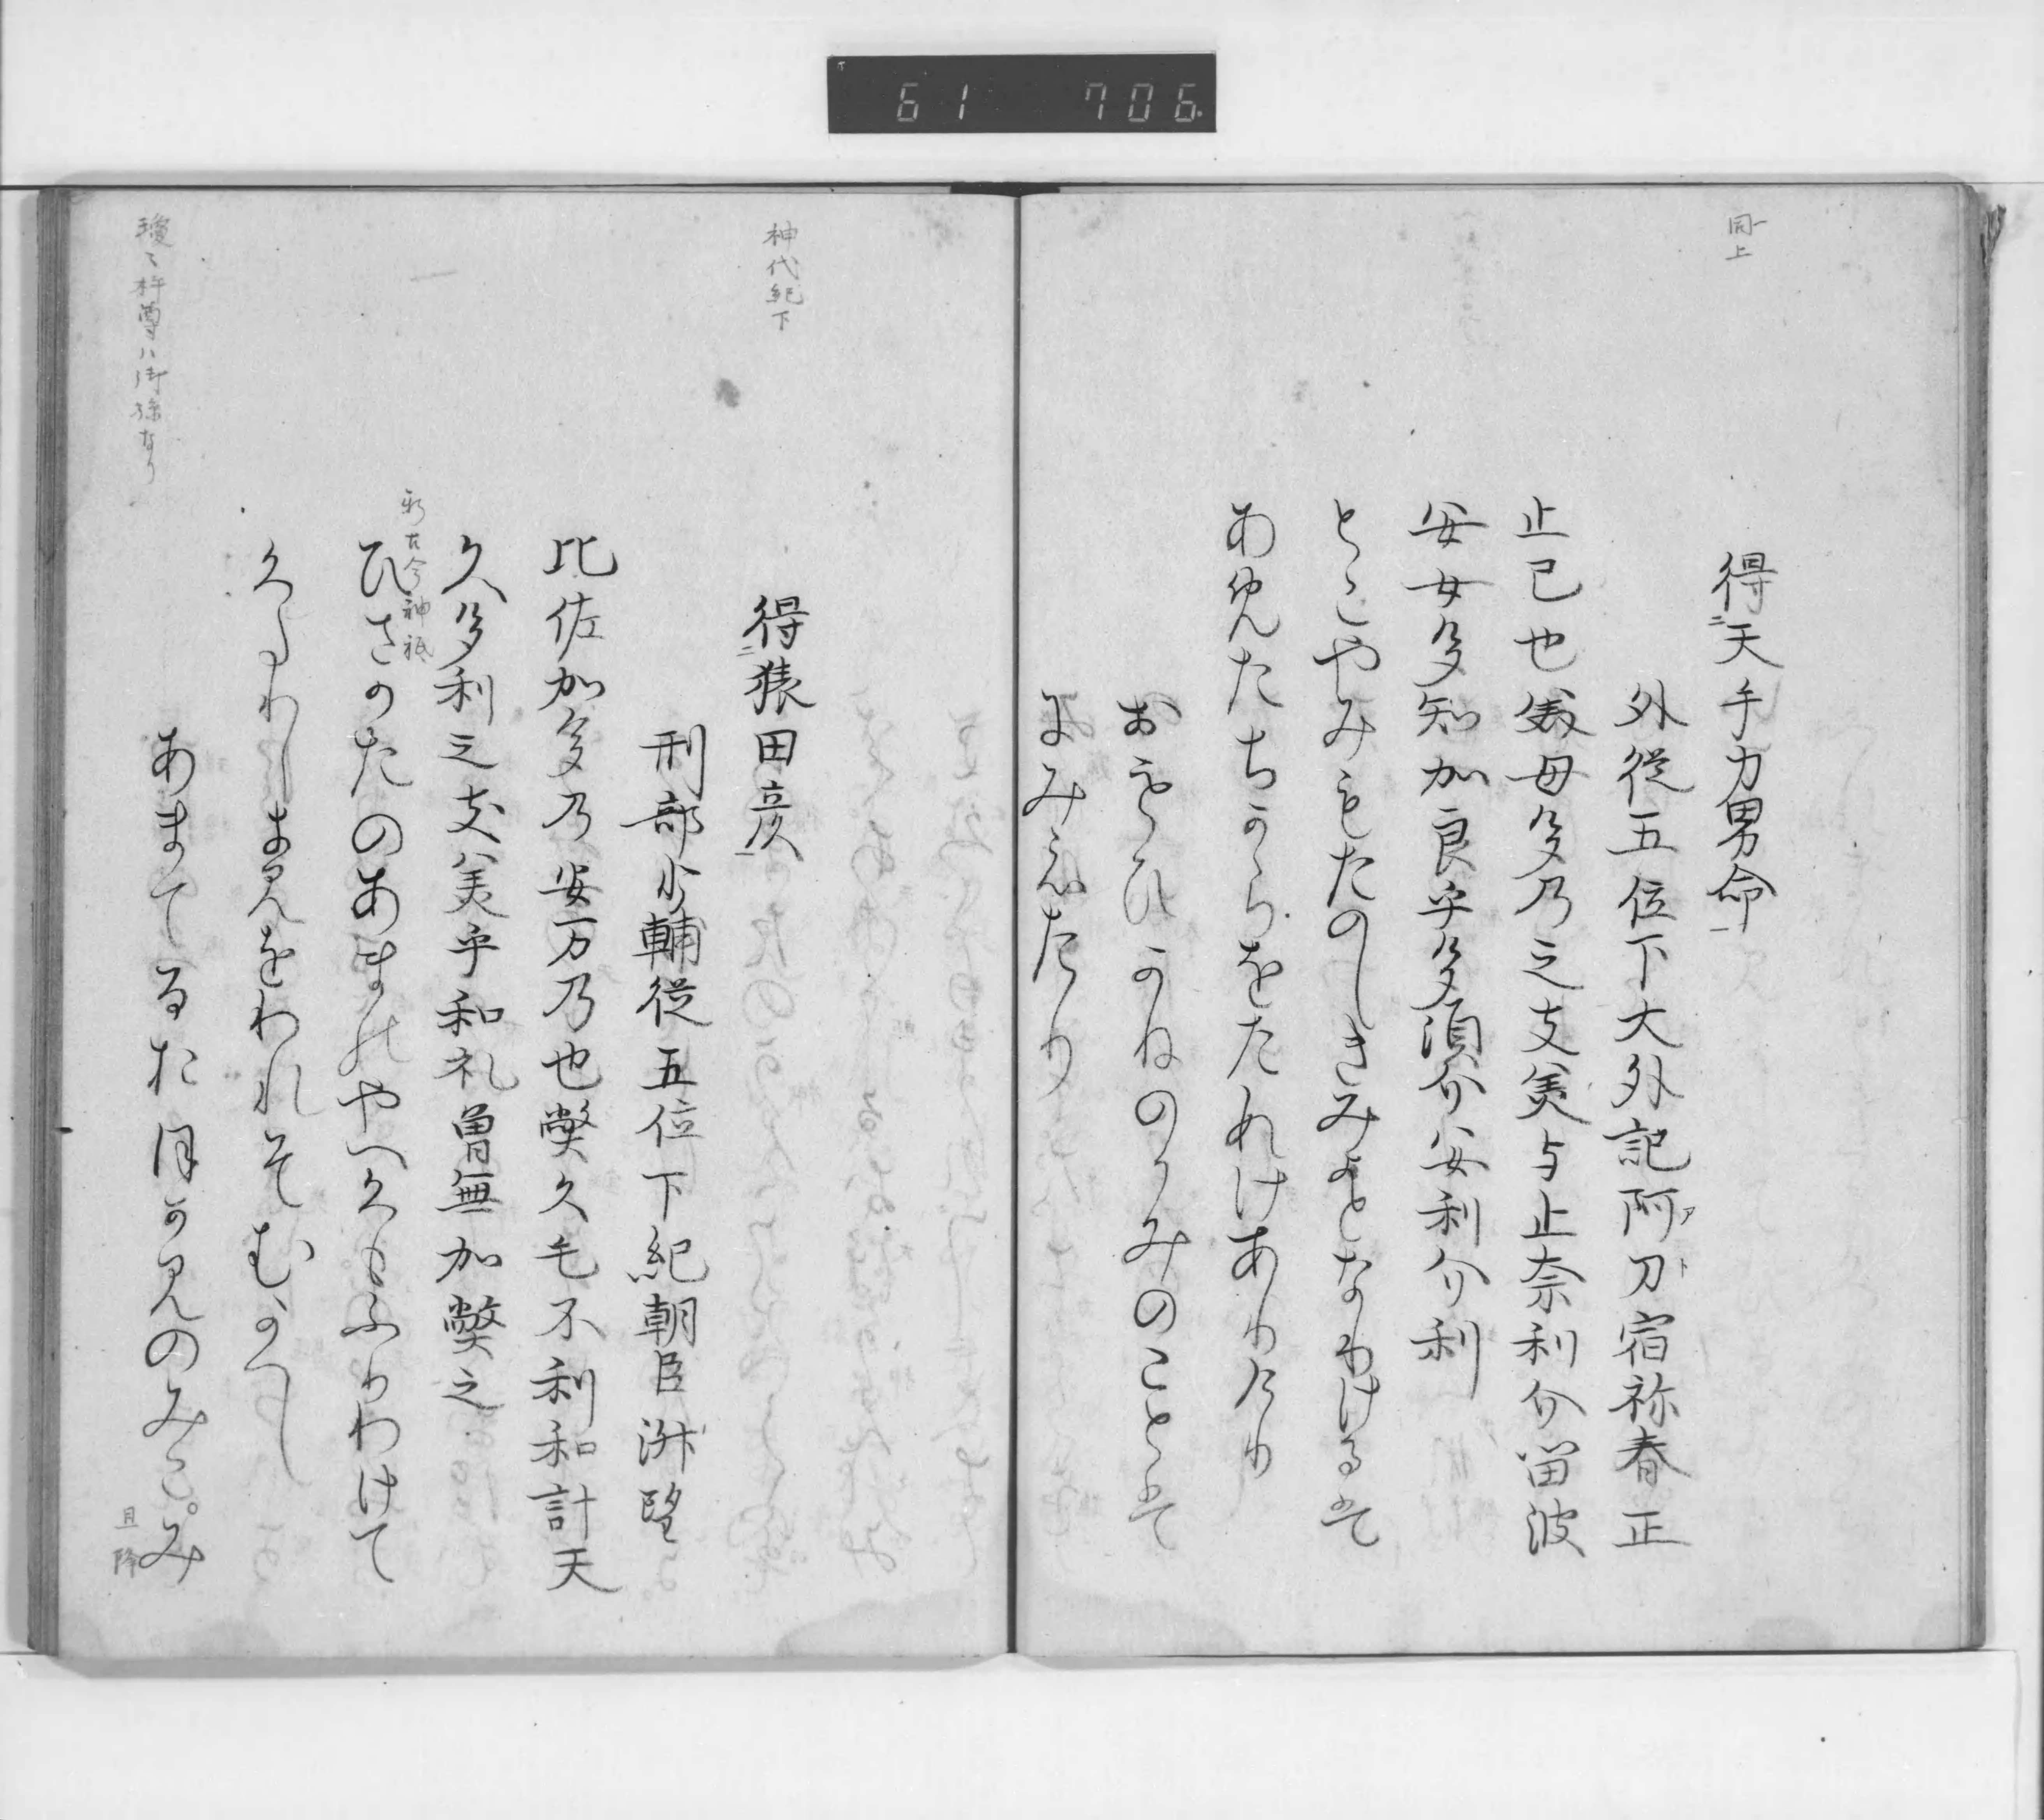 61 706
同上
得二天手力男命一
外従五位下大外記阿刀宿祢春正
アト
止己也美母多乃之支美与止奈利介留波
安女多知加良乎多須介安利介利
とこやみもたのしきみよとなりけるは
あめたちからをたすけありけり
おもひかねのかみのことは
にみえたり
神代紀下
得二猨田彦一
刑部少輔従五位下紀朝臣淑望
比佐加多乃安万乃也弊久毛不利和計天
久多利之支美乎和礼曽無加弊之
新古今神祇
ひさかたのあまのやへくもふりわけて
くたりしきみをわれそむかへし
瓊々杵尊ハ御孫なり
あまてるおほかみのみこ。み
且降